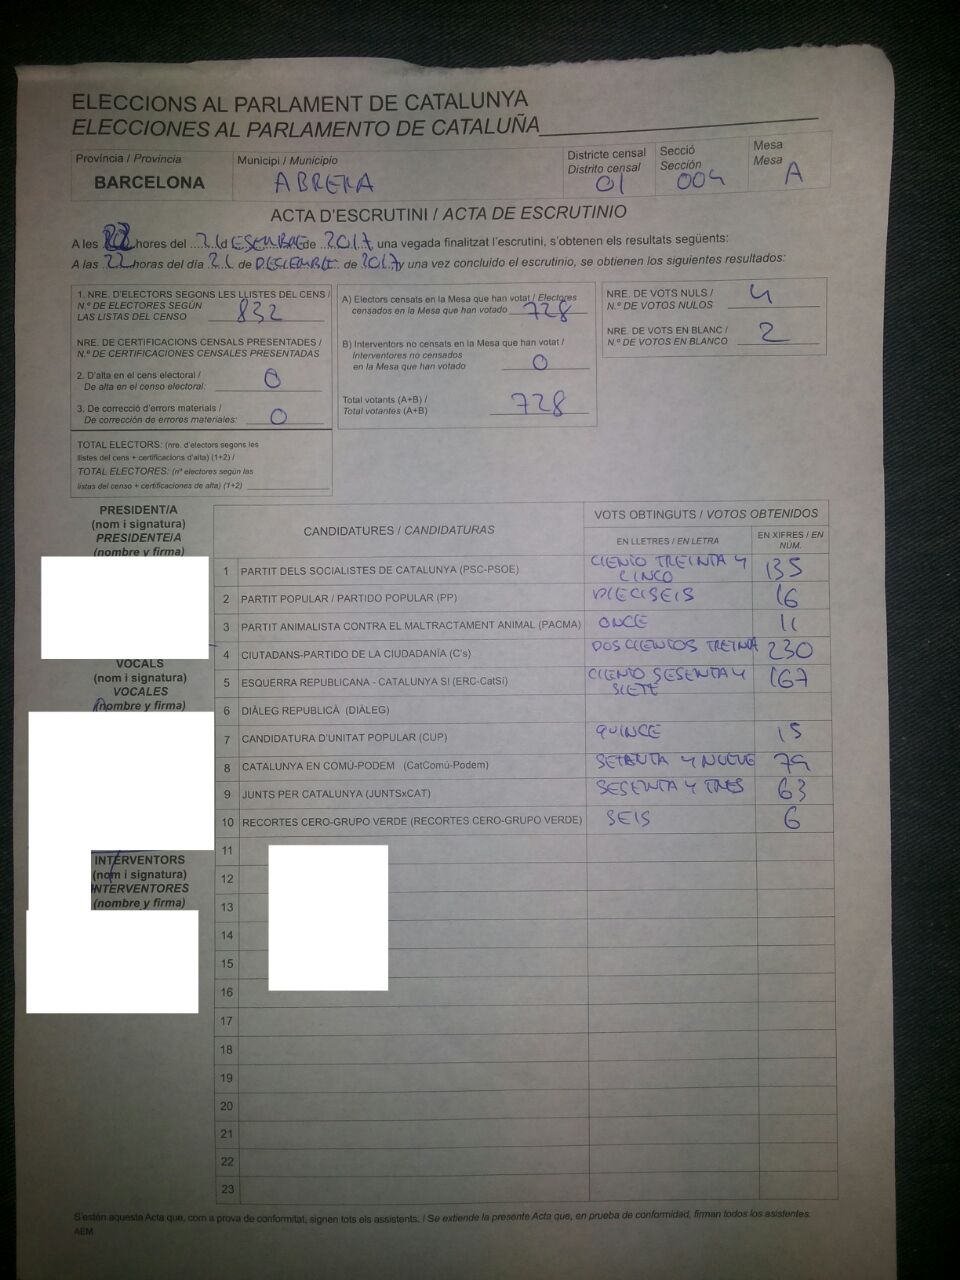 ELECCIONS AL PARLAMENT DE CATALUNYA
ELECCIONES AL PARLAMENTO DE CATALUÑA
Província / Provincia
BARCELONA
Municipi / Municipio
ABRERA
Districte censal
Distrito censal
01
Secció
Sección
004
Mesa
Mesa
A
ACTA D'ESCRUTINI / ACTA DE ESCRUTINIO
A les 22 hores del 21 d ESEMBRE de 2017 una vegada finalitzat l'escrutini, s'obtenen els resultats següents:
A las 22 horas del día 21 de DICIEMBRE de 2017 y una vez concluido el escrutinio, se obtienen los siguientes resultados:
1. NRE. D'ELECTORS SEGONS LES LLISTES DEL CENS /
N.º DE ELECTORES SEGÚN
LAS LISTAS DEL CENSO 832
NRE. DE CERTIFICACIONS CENSALS PRESENTADES /
N.º DE CERTIFICACIONES CENSALES PRESENTADAS
2. D'alta en el cens electoral /
De alta en el censo electoral: 0
3. De correcció d'errors materials /
De corrección de errores materiales: 0
TOTAL ELECTORS: (nre. d'electors segons les
llistes del cens + certificacions d'alta) (1+2) /
TOTAL ELECTORES: (nº electores según las
listas del censo + certificaciones de alta) (1+2)
A) Electors censats en la Mesa que han votat / Electores
censados en la Mesa que han votado 728
B) Interventors no censats en la Mesa que han votat /
Interventores no censados
en la Mesa que han votado 0
Total votants (A+B) /
Total votantes (A+B) 728
NRE. DE VOTS NULS /
N.º DE VOTOS NULOS 4
NRE. DE VOTS EN BLANC /
N.º DE VOTOS EN BLANCO 2
PRESIDENT/A
(nom i signatura)
PRESIDENTE/A
(nombre y firma)
VOCALS
(nom i signatura)
VOCALES
(nombre y firma)
INTERVENTORS
(nom i signatura)
INTERVENTORES
(nombre y firma)
CANDIDATURES / CANDIDATURAS
VOTS OBTINGUTS / VOTOS OBTENIDOS
EN LLETRES / EN LETRA
EN XIFRES / EN NÚM.
1 PARTIT DELS SOCIALISTES DE CATALUNYA (PSC-PSOE) CIENTO TREINTA Y CINCO 135
2 PARTIT POPULAR / PARTIDO POPULAR (PP) DIECISEIS 16
3 PARTIT ANIMALISTA CONTRA EL MALTRACTAMENT ANIMAL (PACMA) ONCE 11
4 CIUTADANS-PARTIDO DE LA CIUDADANÍA (C's) DOSCIENTOS TREINTA 230
5 ESQUERRA REPUBLICANA - CATALUNYA SÍ (ERC-CatSí) CIENTO SESENTA Y SIETE 167
6 DIÀLEG REPUBLICÀ (DIÀLEG)
7 CANDIDATURA D'UNITAT POPULAR (CUP) QUINCE 15
8 CATALUNYA EN COMÚ-PODEM (CatComú-Podem) SETENTA Y NUEVE 79
9 JUNTS PER CATALUNYA (JUNTSxCAT) SESENTA Y TRES 63
10 RECORTES CERO-GRUPO VERDE (RECORTES CERO-GRUPO VERDE) SEIS 6
11
12
13
14
15
16
17
18
19
20
21
22
23
S'estén aquesta Acta que, com a prova de conformitat, signen tots els assistents. / Se extiende la presente Acta que, en prueba de conformidad, firman todos los asistentes.
AEM